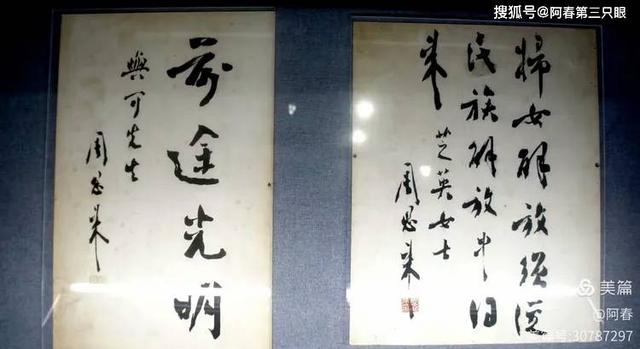 搜狐号@阿春第三只眼
婦女解放須從
民族解放中得
来
芝英女士
周恩来
前途光明
與可先生
周恩来
美篇
@阿春
30787297